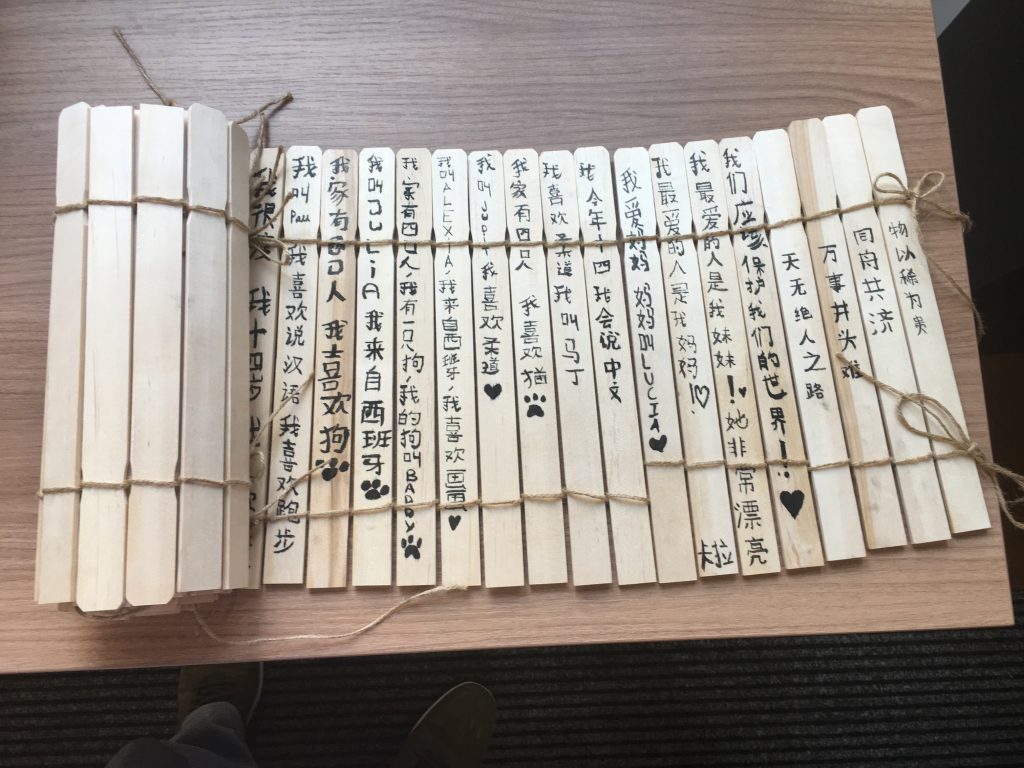 物以稀为贵
同舟共济
万事开头难
天无绝人之路
我们应该保护我们的世界!
我最爱的人是我妹妹!她非常漂亮
卡拉
我最爱的人是我妈妈!
我爱妈妈 妈妈叫LUCIA
我今年十四 我会说中文
我喜欢柔道 我叫马丁
我家有四口人 我喜欢猫
我叫 我喜欢柔道
我叫ALEXIA,我来自西班牙,我喜欢画画
我家有四口人,我有一只狗,我的狗叫BADDY
我叫JULIA 我来自西班牙
我家有四口人 我喜欢狗
我叫Pau 我喜欢说汉语 我喜欢跑步
我很 我十四岁 我